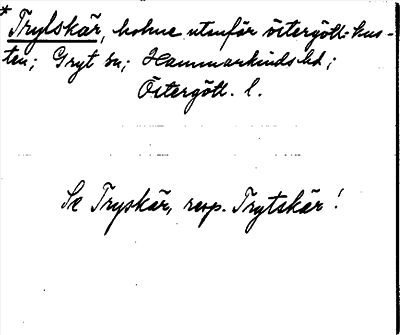 * Trylskär, holme utenför östergötl. kus-
ten; Gryt sn; Hammarkinds hd;
Östergötl. l.
Se Tryskär, resp. Trytskär!